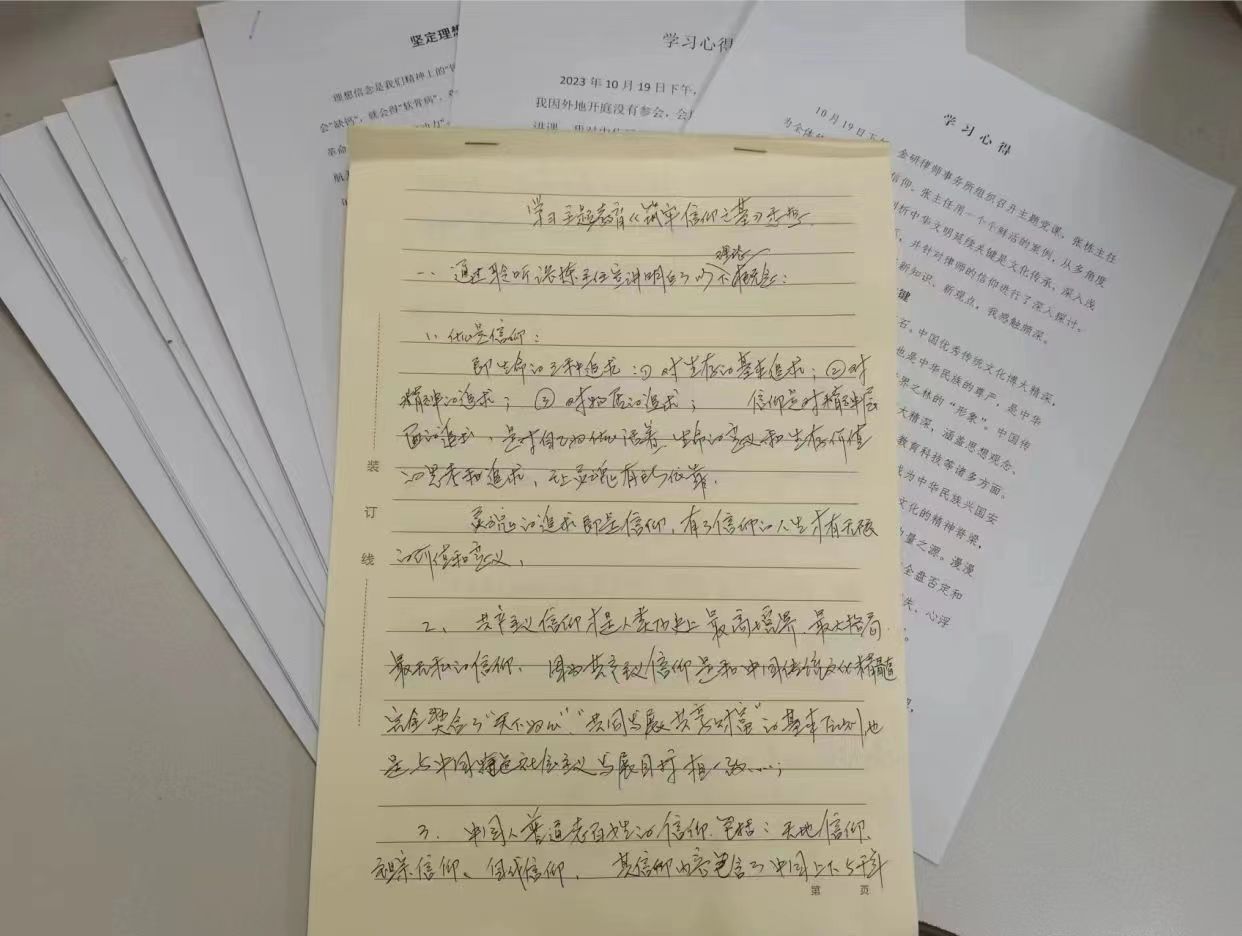 坚定理想
理想信念是我们精神上的“钙
会“缺钙”，就会得“软骨病”，
革命
动力”
航
学习心得
2023年10月19日下午，
我因外地开庭没有参会，会
讲课，我对
学习心得
10月19日下午，金研律师事务所组织召开主题党课，张栋主任
为全体
信仰。张主任用一个个鲜活的案例，从多角度
剖析中华文明延续关键是文化传承，深入浅
，并针对律师的信仰进行了深入探讨。
新知识、新观点，我感触颇深。
键
石。中国优秀传统文化博大精深，
也是中华民族的尊严，是中华
界之林的“形象”。中国传
大精深，涵盖思想观念、
教育科技等诸多方面。
成为中华民族兴国安
文化的精神脊梁，
力量之源。漫漫
全盘否定和
失、心浮
学习主题教育《筑牢信仰之基》
理论
一、通过聆听张栋主任宣讲明白了几个概念：
1、什么是信仰：
即生命的三种追求：①对生存的基本追求；②对
精神的追求；③对物质的追求； 信仰是对精神层
面的追求，是对自己为什么活着、生命的意义和生存价值
的思考和追求，让灵魂有所依靠。
灵魂的追求即是信仰，有了信仰的人生才有无限
的价值和意义。
2、共产主义信仰才是人类历史上最高境界、最大格局、
最无私的信仰。因为共产主义信仰是和中国传统文化精髓
完全契合了“天下为公”、“共同发展共享财富”的基本原则，也
是与中国特色社会主义发展目标相一致……；
3、中国人普通老百姓的信仰，包括：天地信仰、
祖宗信仰、 信仰， 其信仰内容包含了中国上下5千年
装
订
线
第 页